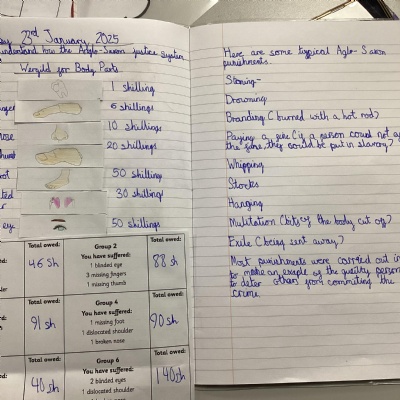 23rd January, 2025
understand how the Anglo-Saxon justice system
Wergild for Body Parts.
1 shilling
6 shillings
10 shillings
20 shillings
50 shillings
30 shillings
eye
50 shillings
Total owed:
46 sh
Group 2
You have suffered:
1 blinded eye
3 missing fingers
1 missing thumb
Total owed:
88 sh
Total owed:
91 sh
Group 4
You have suffered:
1 missing foot
1 dislocated shoulder
1 broken nose
Total owed:
90 sh
Total owed:
40 sh
Group 6
You have suffered:
2 blinded eyes
1 dislocated shoulder
Total owed:
140 sh
Here are some typical Aglo-Saxon
punishments.
Stoning-
Drowning
Branding (burned with a hot rod)
Paying a fine (if a person could not
the fine they could be put in slavery)
Whipping
Stocks
Hanging
Mulitation (bits of the body cut off)
Exile (being sent away)
Most punishments were carried out in
to make an exaple of the guilty person
to deter others from commiting the
crime.